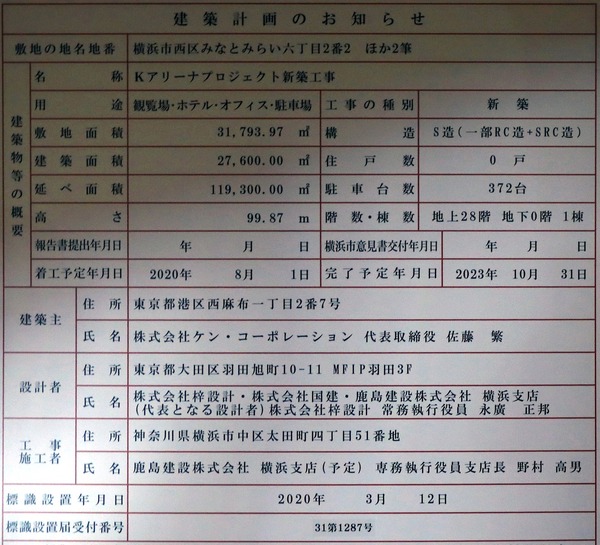 建築計画のお知らせ
敷地の地名地番 横浜市西区みなとみらい六丁目2番2 ほか2筆
建築物等の概要
名称 Kアリーナプロジェクト新築工事
用途 観覧場・ホテル・オフィス・駐車場 工事の種別 新築
敷地面積 31,793.97 ㎡ 構造 S造(一部RC造+SRC造)
建築面積 27,600.00 ㎡ 住戸数 0 戸
延べ面積 119,300.00 ㎡ 駐車台数 372台
高さ 99.87 m 階数・棟数 地上28階 地下0階 1棟
報告書提出年月日 年 月 日 横浜市意見書交付年月日 年 月 日
着工予定年月日 2020年 8月 1日 完了予定年月日 2023年 10月 31日
建築主 住所 東京都港区西麻布一丁目2番7号
氏名 株式会社ケン・コーポレーション 代表取締役 佐藤 繁
設計者 住所 東京都大田区羽田旭町10-11 MFIP羽田3F
氏名 株式会社梓設計・株式会社国建・鹿島建設株式会社 横浜支店
(代表となる設計者)株式会社梓設計 常務執行役員 永廣 正邦
工事施工者 住所 神奈川県横浜市中区太田町四丁目51番地
氏名 鹿島建設株式会社 横浜支店(予定) 専務執行役員支店長 野村 高男
標識設置年月日 2020年 3月 12日
標識設置届受付番号 31第1287号